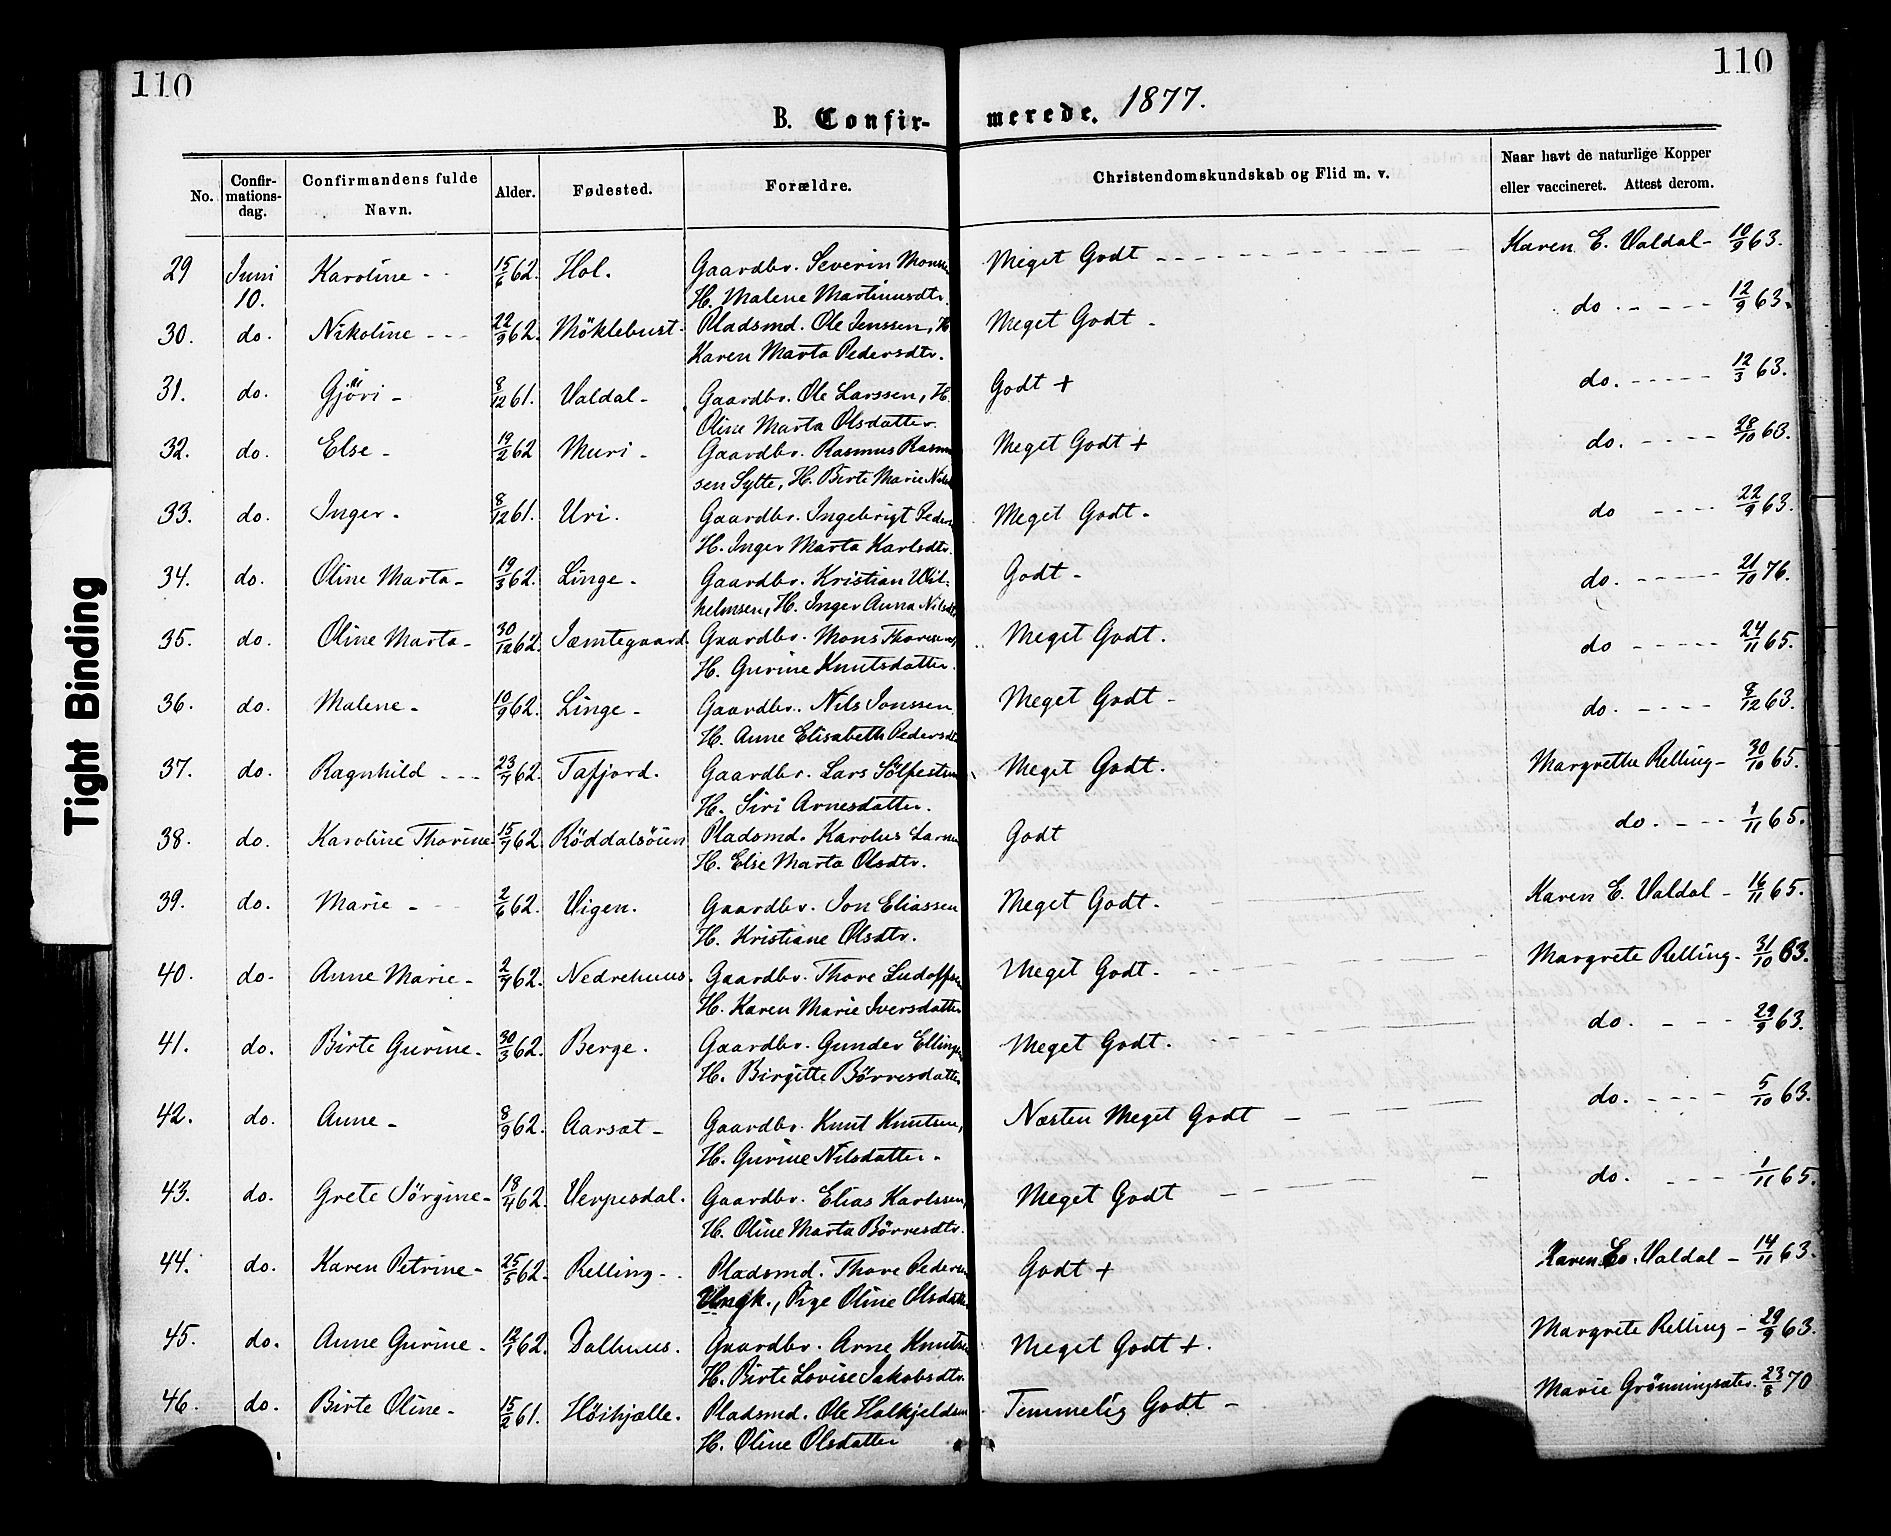 110
110
B. Confirmerede. 1877.
No. | Confirmationsdag. | Confirmandens fulde Navn. | Alder. | Fødested. | Forældre. | Christendomskundskab og Flid m. v. | Naar havt de naturlige Kopper eller vaccineret. Attest derom.
29 Juni 10. Karoline - - 15/6 62. Hol. Gaardbr. Severin Monsen Meget Godt - - - Karen E. Valdal - 10/9 63.
H. Malene Martinusdtr.
30. do. Nikoline - - - 22/9 62. Möklebust. Pladsmd. Ole Jenssen, H. Meget Godt - do. - - - - 12/9 63.
Karen Marta Pedersdtr.
31. do. Gjöri - 8/12 61. Valdal - Gaardbr. Ole Larssen, H. Godt + do. - - - - 12/3 63.
Oline Marta Olsdatter.
32. do. Else - 19/2 62 Muri - Gaardbr. Rasmus Rasmu Meget Godt + do. - - - - 28/10 63.
sen Sytte, H. Birte Marie Nils
33. do. Inger - 8/12 61. Uri. Gaardbr. Ingebrigt Peders Meget Godt - do - - - - 22/9 63.
H. Inger Marta Karlsdtr.
34. do. Oline Marta - 19/3 62. Linge - Gaardbr. Kristian Wil- Godt - do. - - - - 21/10 76.
helmsen, H. Inger Anna Nilsdtr
35. do. Oline Marta - 30/12 62. Jæmtegaard. Gaardbr. Mons Thoresen, Meget Godt. do - - - - 24/11 65.
H. Gurine Knutsdatter.
36. do. Malene - 10/9 62. Linge - Gaardbr. Nils Jonssen Meget Godt - do. - - - - 8/12 63.
H. Anne Elisabeth Pedersdt
37. do. Ragnhild - - - 23/7 62. Tafjord. Gaardbr. Lars Sölfesten Meget Godt. Margrethe Relling - 30/10 65.
H. Siri Arnesdatter.
38. do. Karoline Thorine 15/7 62. Röddalsöien Pladsmd. Karolus Larsen Godt do. - - - 1/11 65.
H. Else Marta Olsdtr.
39. do. Marie - 2/6 62. Vigen. Gaardbr. Jon Eliassen Meget Godt. Karen E. Valdal - 16/11 65.
H. Kristiane Olsdtr.
40. do - Anne Marie - 2/7 62. Nedrehuus. Gaardbr. Thore Ludolfsen Meget Godt. Margrete Relling - 31/10 63.
H. Karen Marie Iversdatter
41. do. Birte Gurine - 30/3 62. Berge. Gaardbr. Gunder Ellings Meget Godt. do. - - - 29/9 63.
H. Birgitte Börresdatter
42. do. Anne - 8/9 62. Aarsæt - Gaardbr. Knut Knutsen, Næsten Meget Godt - do. - - - - 5/10 63.
H. Gurine Nilsdatter -
43. do. Grete Sörgine - 18/4 62. Verpesdal. Gaardbr. Elias Karlssen, Meget Godt do. - - - 1/11 65.
H. Oline Marta Börresdtr.
44. do. Karen Petrine - 25/5 62. Relling - Pladsmd. Thore Peders Godt + Karen E. Valdal - 14/11 63.
Ungk., Pige Oline Olsdatter
45. do. Anne Gurine - 12/7 62. Dalhuus. Gaardbr. Arne Knutsen Meget Godt +. Margrete Relling - 29/9 63.
H. Birte Lovise Jakobsdtr.
46. do. Birte Oline - 15/2 61. Höihjælle. Pladsmd. Ole Halkjeldsen Temmelig Godt - Marie Grönningsæter 23/8 70
H. Oline Olsdatter
Tight Binding